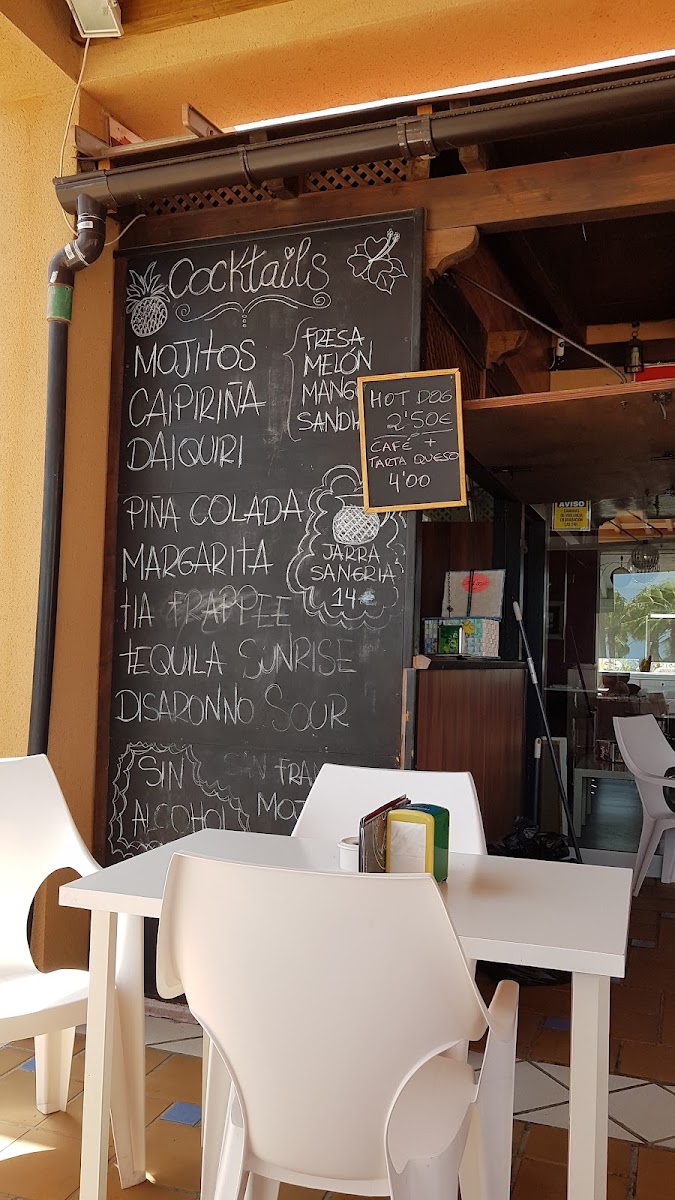 Cocktails
MOJITOS
CAIPIRIÑA
DAIQUIRI
FRESA
MELÓN
MANGO
SANDH
HOT DOG
2'50€
CAFÉ +
TARTA QUESO
4'00
PIÑA COLADA
MARGARITA
TIA FRAPPEE
TEQUILA SUNRISE
DISARONNO SOUR
JARRA
SANGRIA
14€
SIN
ALCOHOL
SIN FRAN
MOJ
AVISO